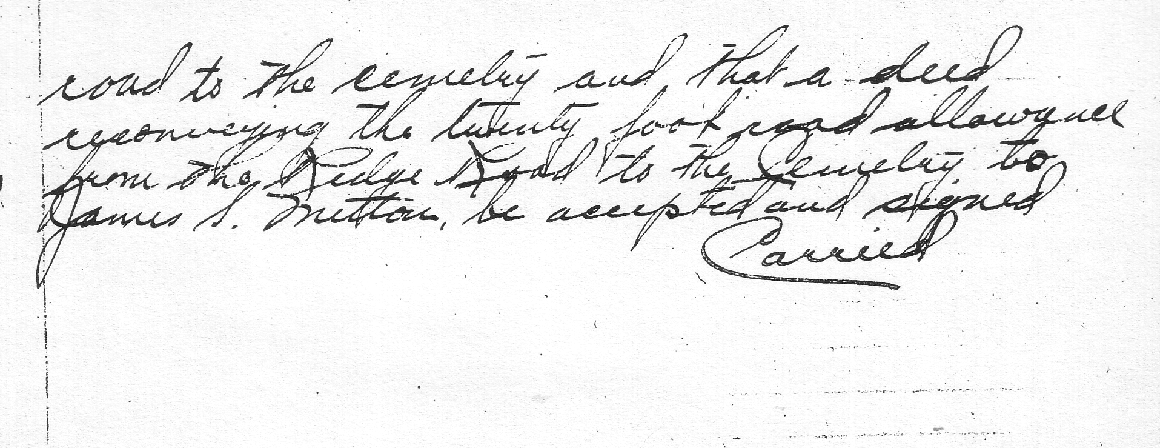 road to the cemetry and that a deed
reconveying the twenty foot road allowance
from the Ridge Road to the Cemetry to
James S. Mitton, be accepted and signed
Carried